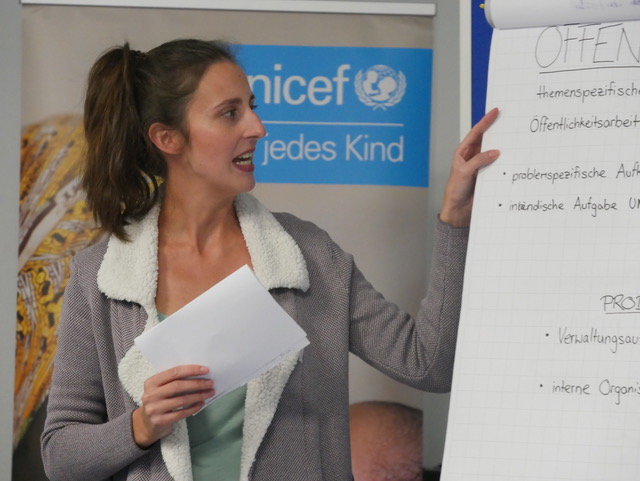 unicef
jedes Kind
ÖFFEN
themenspezifische
Öffentlichkeitsarbeit
• problemspezifische Aufk
• inländische Aufgabe UN
PRO
• Verwaltungsau
• interne Organis